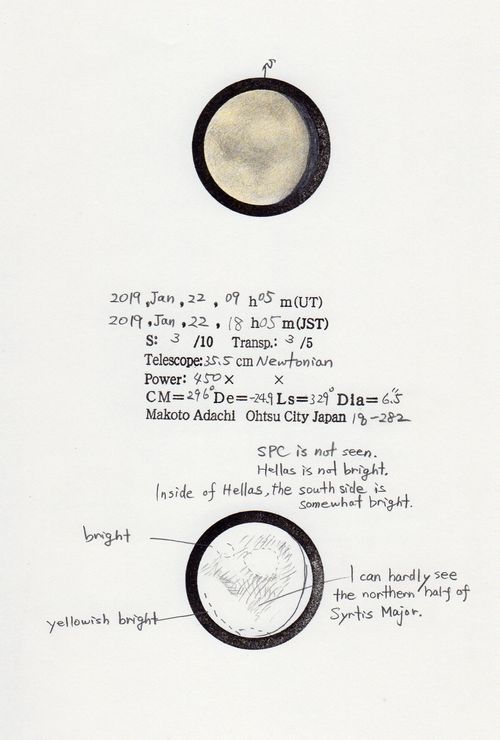 2019, Jan, 22, 09 h 05 m (UT)
2019, Jan, 22, 18 h 05 m (JST)
S: 3 /10 Transp.: 3 /5
Telescope: 35.5 cm Newtonian
Power: 450 × ×
CM=296° De=-24.9 Ls=329° Dia=6.″5
Makoto Adachi Ohtsu City Japan 18-282
SPC is not seen.
Hellas is not bright.
Inside of Hellas, the south side is
somewhat bright.
bright
I can hardly see
the northern half of
Syrtis Major.
yellowish bright